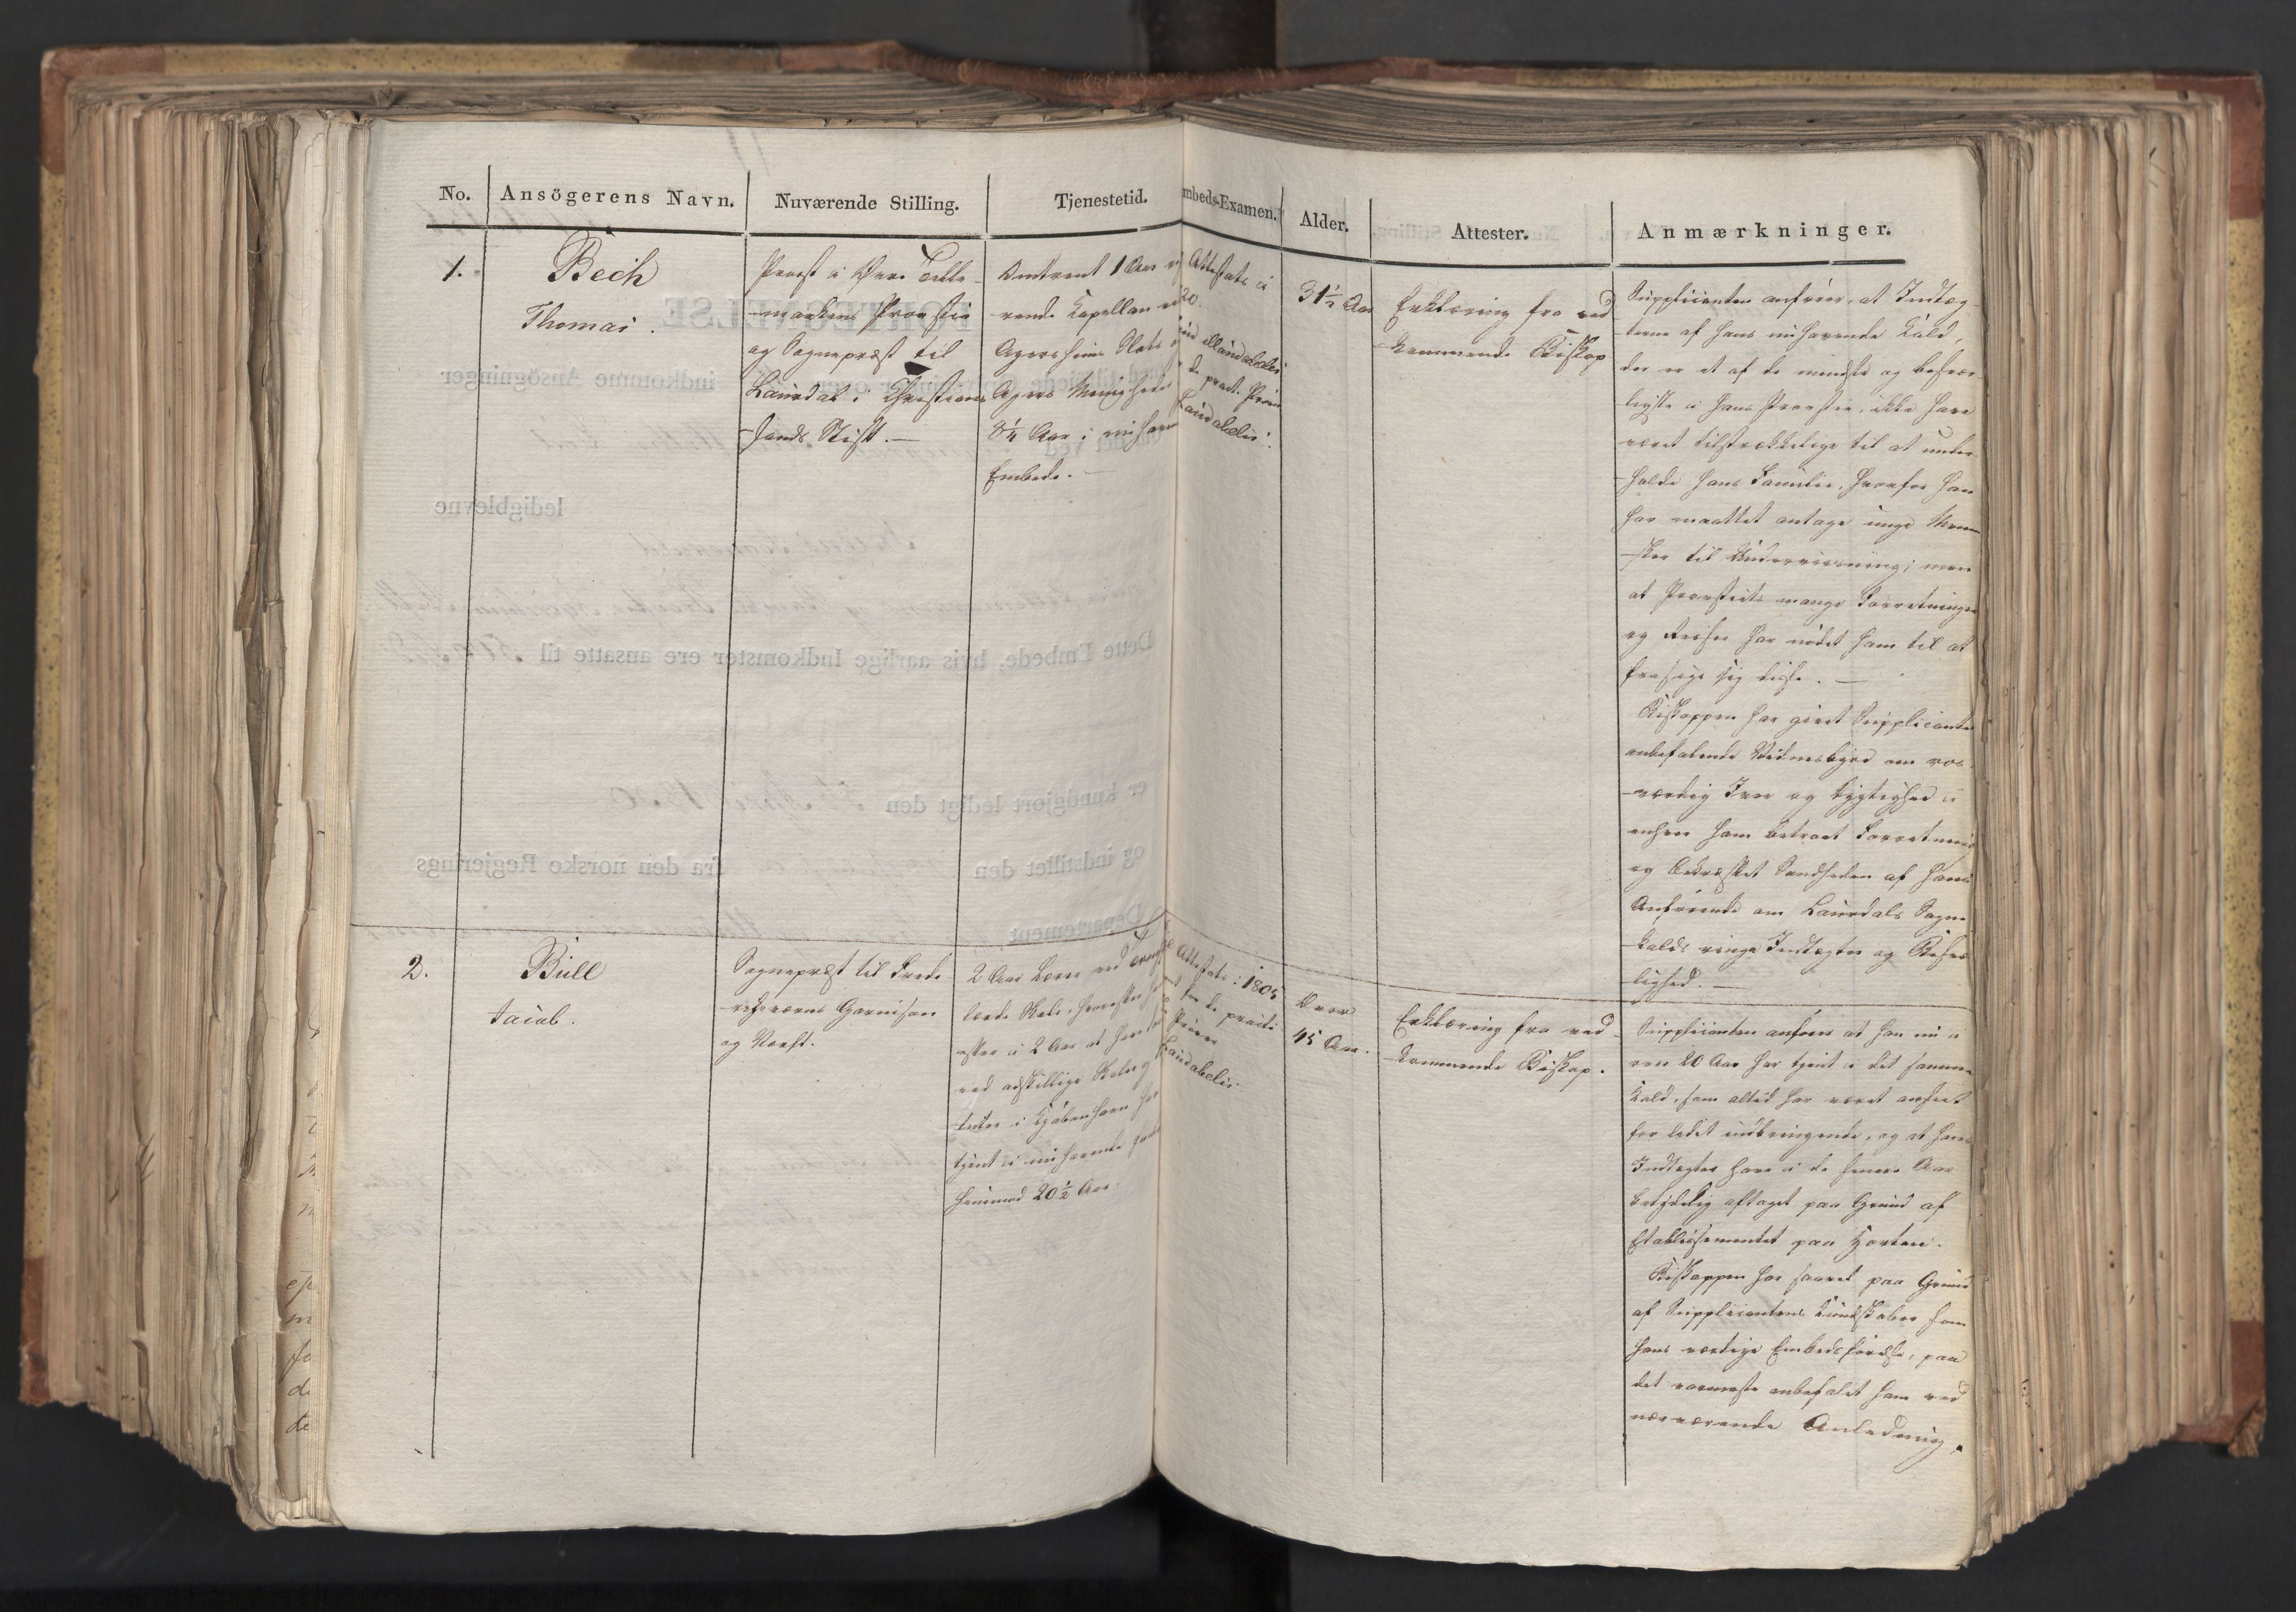 No.
Ansögerens Navn.
Nuværende Stilling.
Tjenestetid.
mbeds-Examen.
Alder.
Attester.
Anmærkninger.
1.
Bech
Thomas.
Provst i Øvre Telle-
markens Provstie
og Sognepræst til
Laurdal i Christians-
sands Stift. —
Omtrent 1 Aar
rende Kapellan
Agershuus Slots
Agers Menigheder
8¼ Aar i nuhavende
Embede. —
Attestats i
20.
Laudabilis
d. pract. Prøve
Laudabilis.
31½ Aar
Erklæring fra ved-
kommende Biskop
Supplicanten anfører, at Indtæg-
terne af hans nuhavende Kald,
der er et af de mindste og besvær-
ligste i hans Provstie, ikke have
været tilstrækkelige til at under-
holde hans Familie, hvorfor han
har maattet antage unge Menne-
sker til Underviisning; men
at Provstiets mange Forretninger
og Reiser har nödet ham til at
frasige sig disse. —
Biskoppen har givet Supplicanten
anbefalende Vidnesbyrd om ros-
værdig Iver og Dygtighed i
enhver ham betroet Forretning
og bekræftet Sandheden af hans
Anførende om Laurdals Sogne-
kalds ringe Indtægter og Besvær-
lighed. —
2.
Bull
Jacob.
Sognepræst til Frede-
riksværns Garnison
og Værft.
2 Aar Lærer ved
lærde Skole, hvorefter
efter i 2 Aar at have
ved adskillige Skoler
tuter i Kjøbenhavn
tjent i nuhavende
henimod 20½ Aar.
Attestats: 1805
for d. practi
Prøve
Laudabilis.
Over
45 Aar.
Erklæring fra ved-
kommende Biskop.
Supplicanten anfører at han nu i
over 20 Aar har tjent i det samme
Kald, som altid har været anseet
for lidet indbringende, og at hans
Indtægter have i de senere Aar
betydelig aftaget paa Grund af
Etablissementet paa Horten.
Biskoppen har saavel paa Grund
af Supplicantens Kundskaber som
hans værdige Embedsførelse, paa
det varmeste anbefalet ham ved
nærværende Anledning.